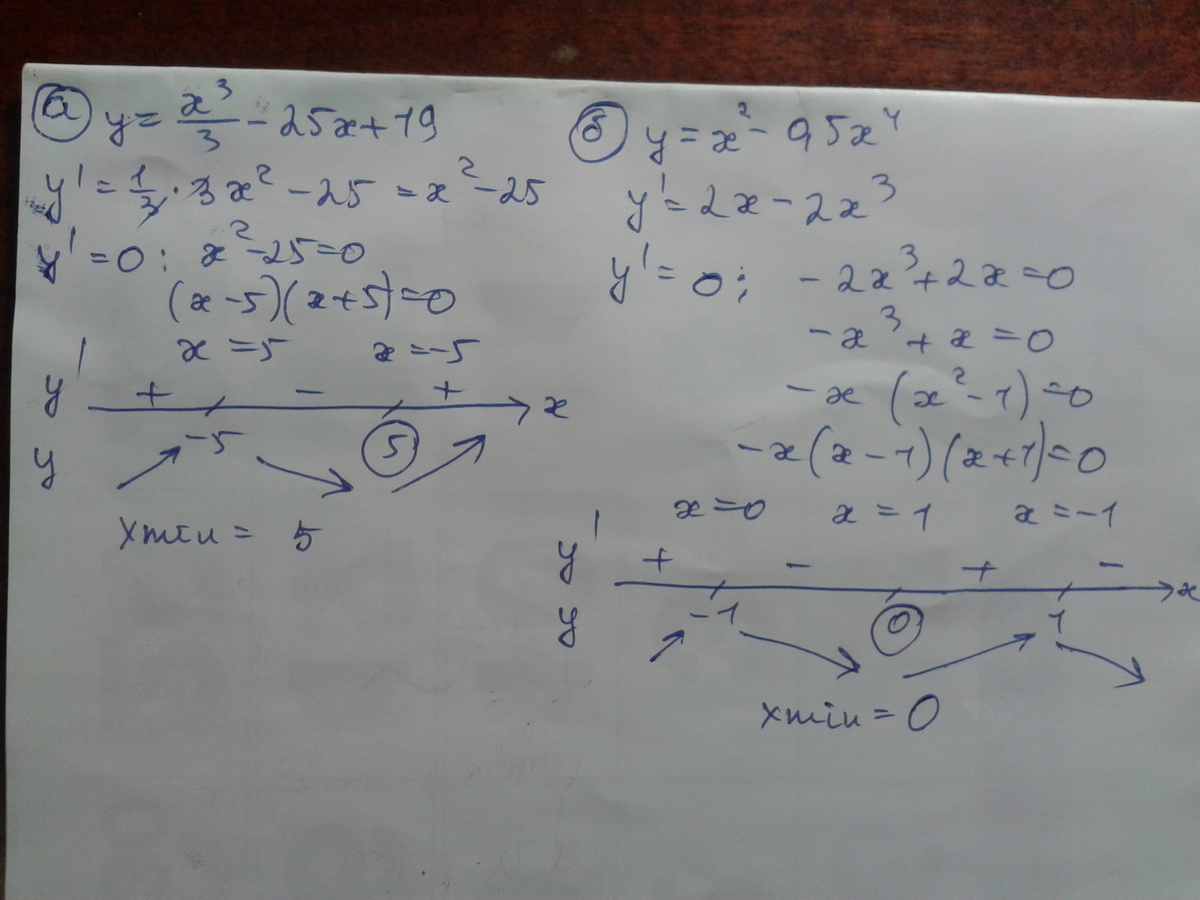 а) y = x³/3 - 25x + 19
y' = 1/3 · 3x² - 25 = x² - 25
y' = 0 : x² - 25 = 0
(x - 5)(x + 5) = 0
x = 5 x = -5
y' + - + x
y -5 5
xmin = 5
б) y = x² - 0,5x⁴
y' = 2x - 2x³
y' = 0 ; -2x³ + 2x = 0
-x³ + x = 0
-x (x² - 1) = 0
-x(x - 1)(x + 1) = 0
x = 0 x = 1 x = -1
y' + - + - x
y -1 0 1
xmin = 0